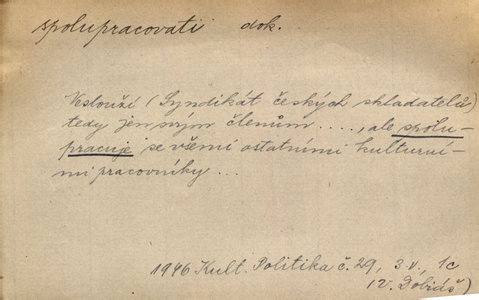 spolupracovati dok.
Neslouží (Syndikát českých skladatelů)
tedy jen svým členům ...., ale spolu-
pracuje se všemi ostatními kulturní-
mi pracovníky ...
1946 Kult. Politika č. 29, 3 v, 1c
(V. Dobiáš)